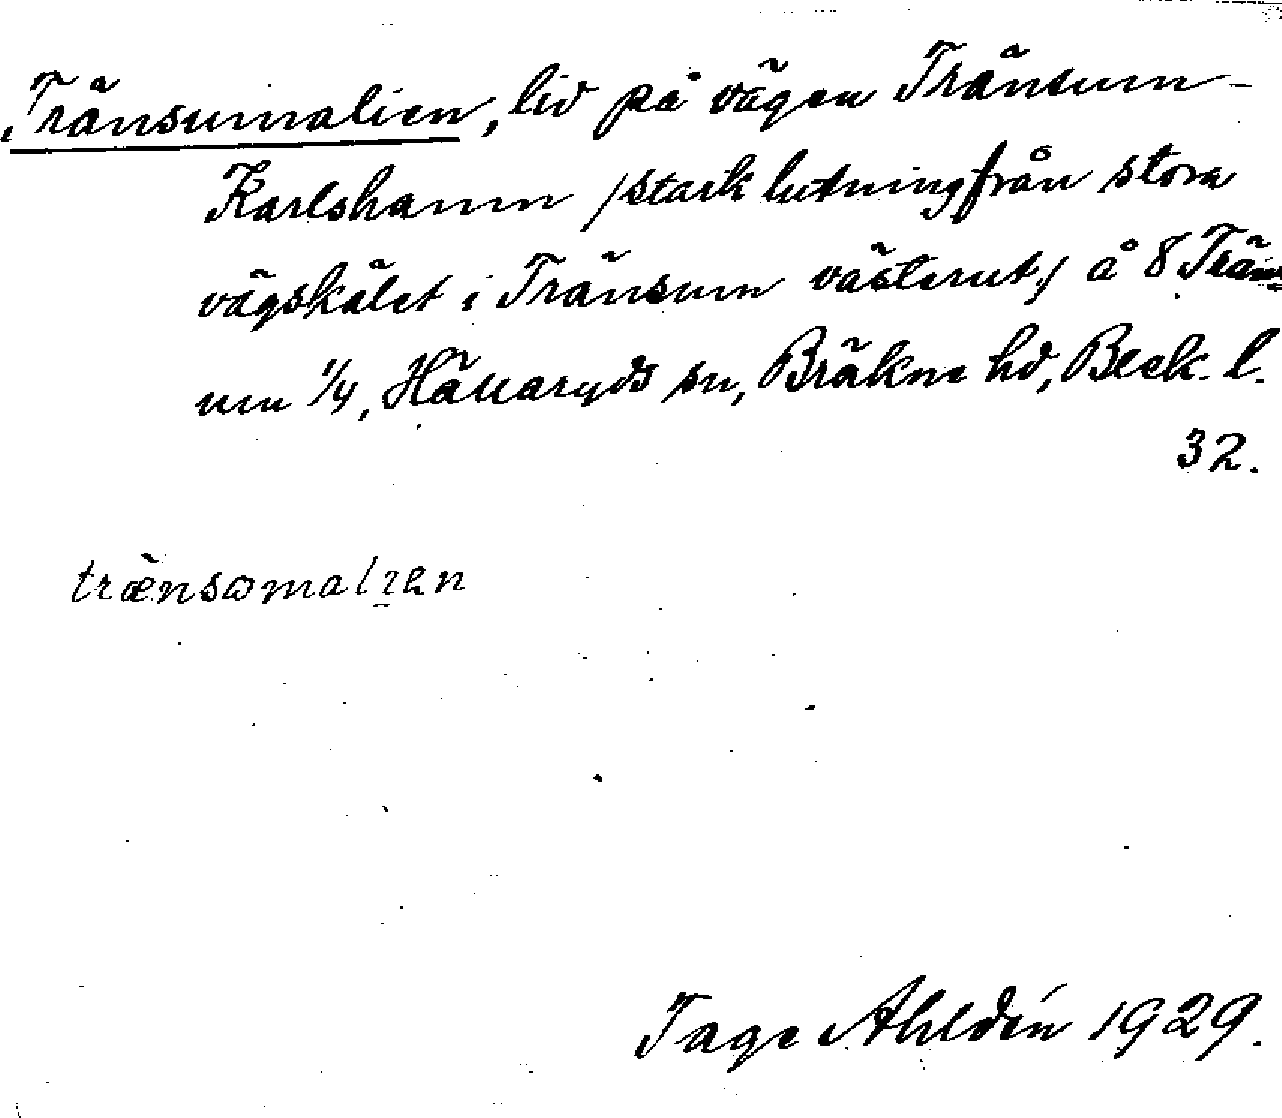 Tränsumalien, lid på vägen Tränsum-
Karlshamn /stark lutning från stora
vägskälet i Tränsum västerut/ å 8 Träns-
um 1/4, Hällaryds sn, Bräkne hd, Blek. l.
32.
trænsomalien
Tage Ahldén 1929.